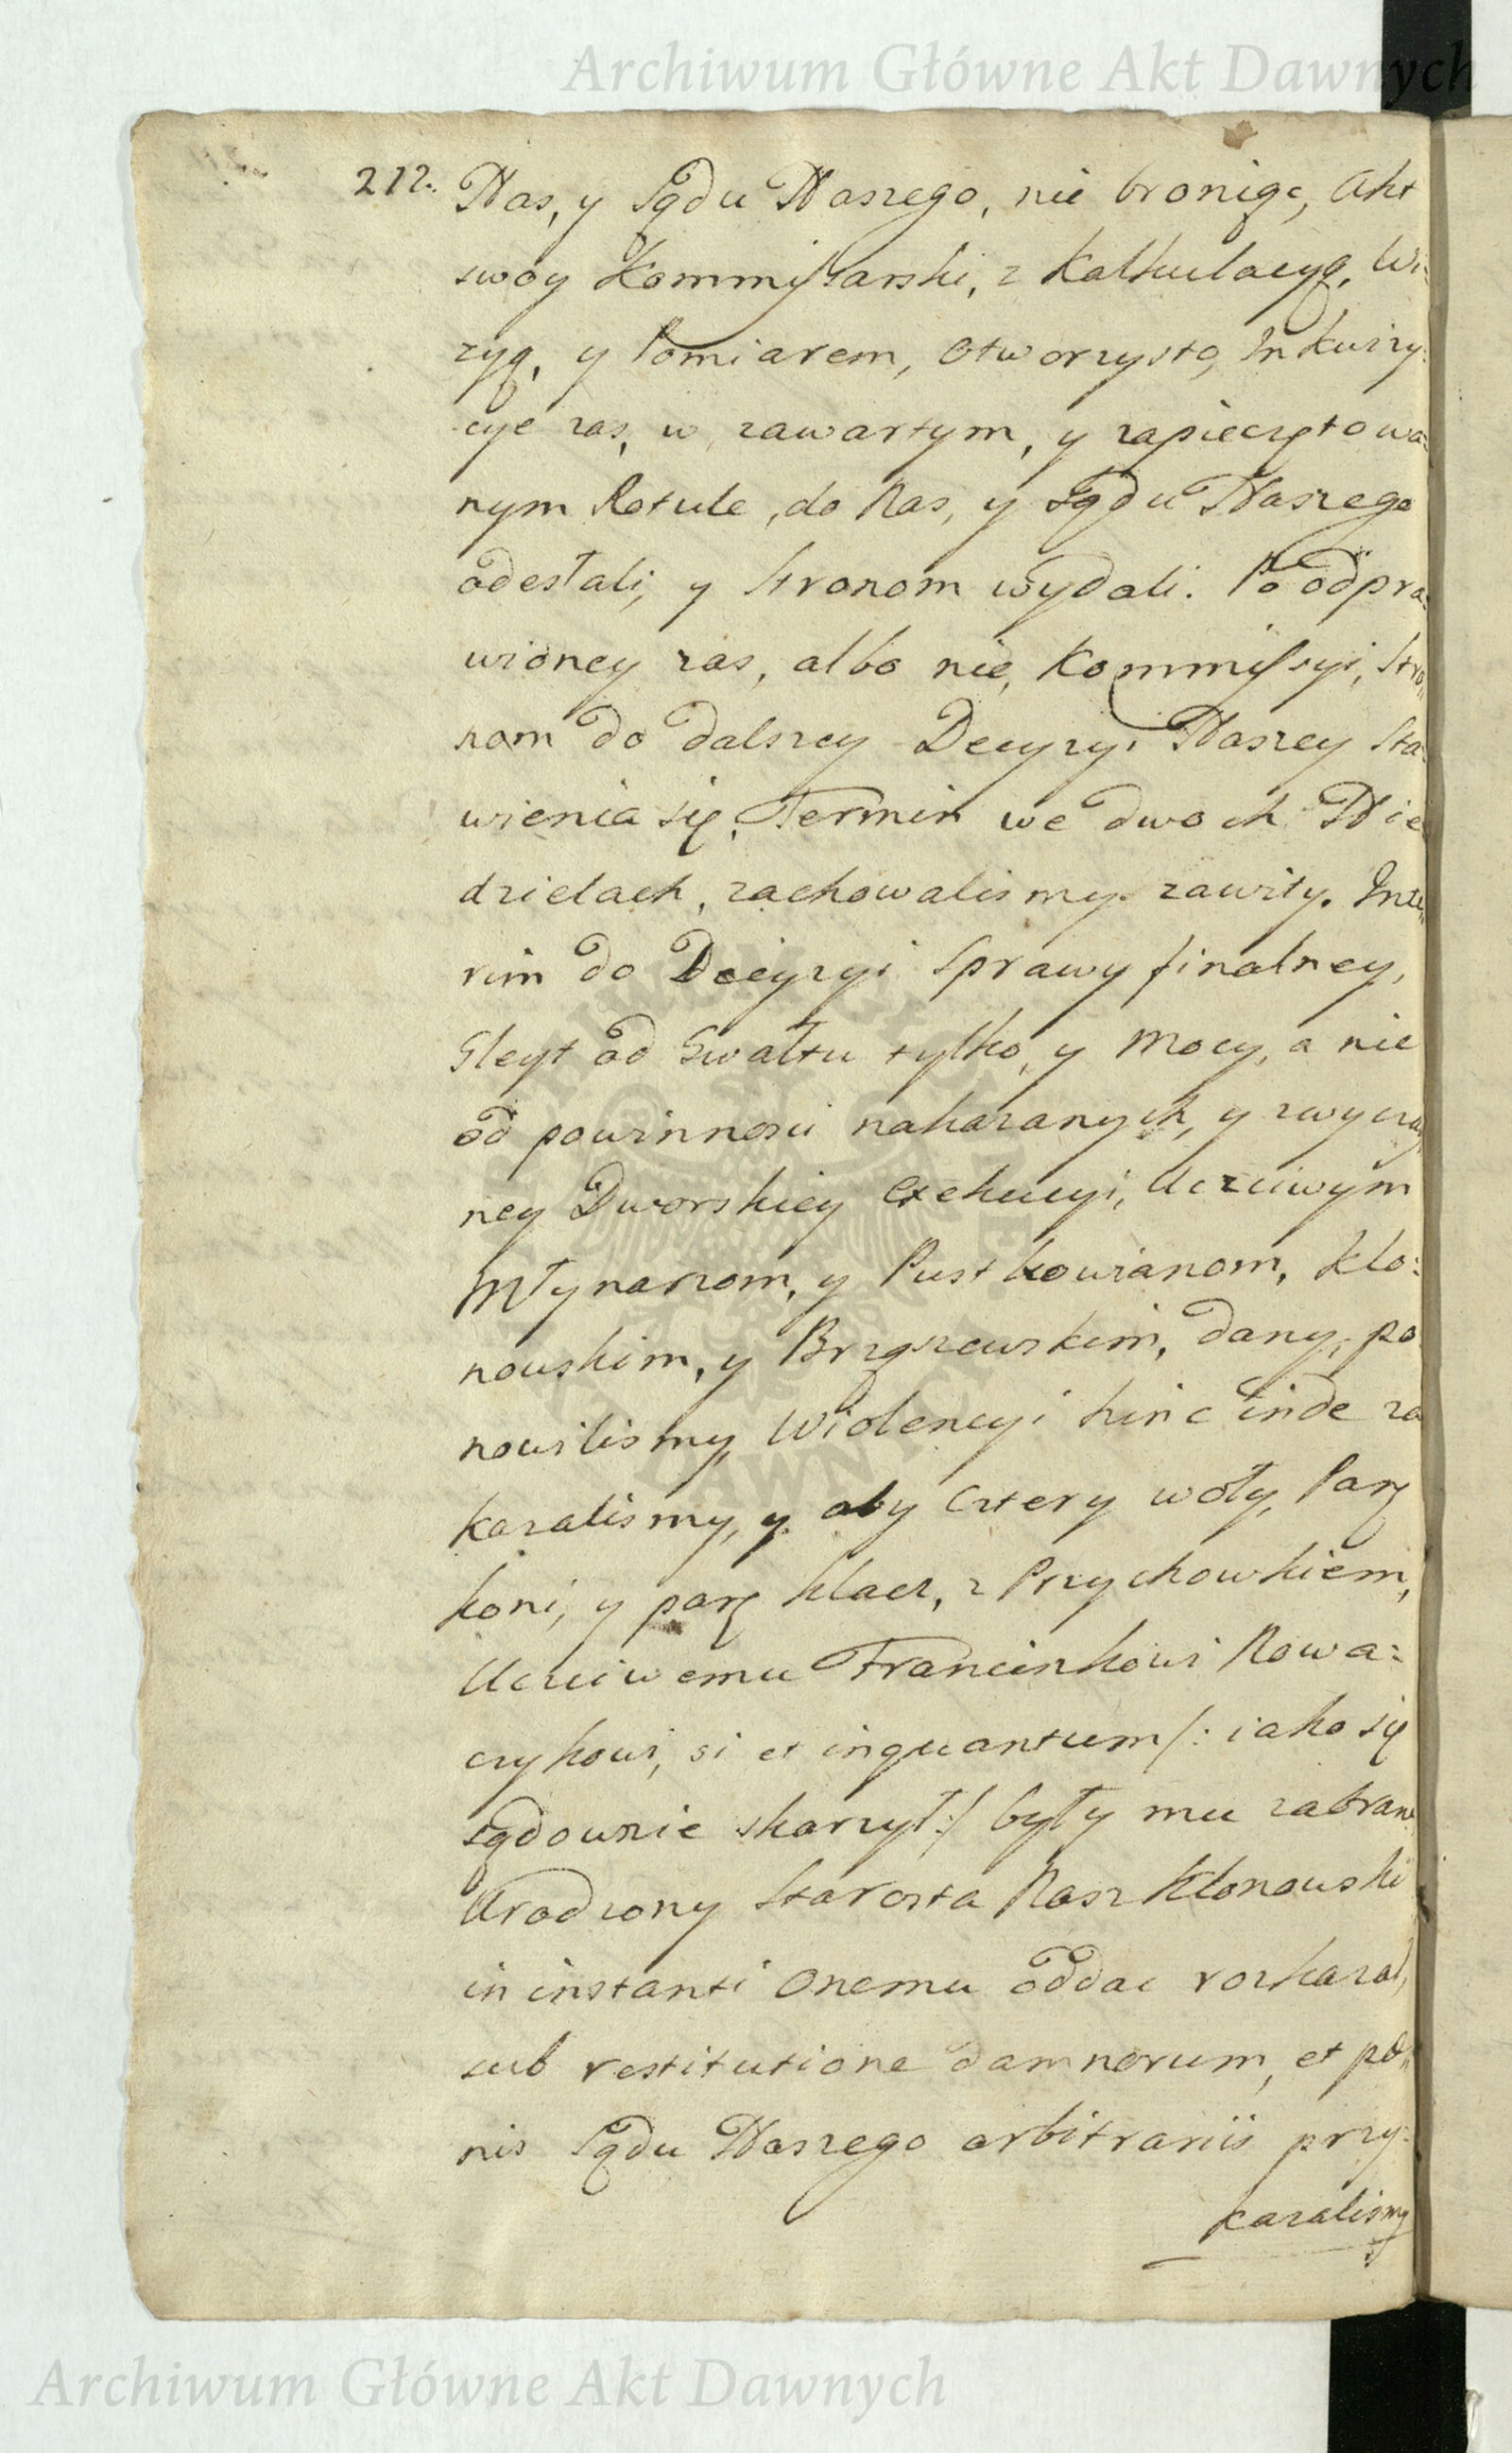 Archiwum Główne Akt Dawnych
212. Nas, y Sądu Naszego, nie broniąc, Akt
swoy Kommissarski, z Kalkulacyą, Wi=
zyą, y Pomiarem, Otworzysto, Inkwizy=
cye zas, w zawartym, y zapieczętowa=
nym Rotule, do Nas, y Sądu Naszego
odesłali, y stronom wydali. Po odpra=
wioney zas, albo nie, Kommissyi, stro=
nom do dalszey Decyzyi Naszey sta=
wienia się, Termin we dwoch Nie
dzielach, zachowalismy zawity. Inte=
rim do Decyzyi sprawy finalney,
Gleyt od Gwałtu tylko, y Mocy, a nie
od powinnosci nakazanych, y zwyczay
ney Dworskiey Exekucyi, Uczciwym
Młynarzom, y Pustkowianom, Klo=
nowskim, y Brzązewskim, dany, po
nowilismy, Wiolencyi hinc inde za
kazalismy, y aby cztery woły, Parę
koni, y parę klacz, z Przychowkiem,
Uczciwemu Francinkowi Nowa=
czykowi, si et inquantum /: iako się
sądownie skarzył :/ były mu zabrane
Urodzony Starosta Nasz Klonowski
in instanti onemu oddac rozkazał,
sub restitutione damnorum, et pœ=
nis Sądu Naszego arbitrariis przy=
kazalismy
Archiwum Główne Akt Dawnych